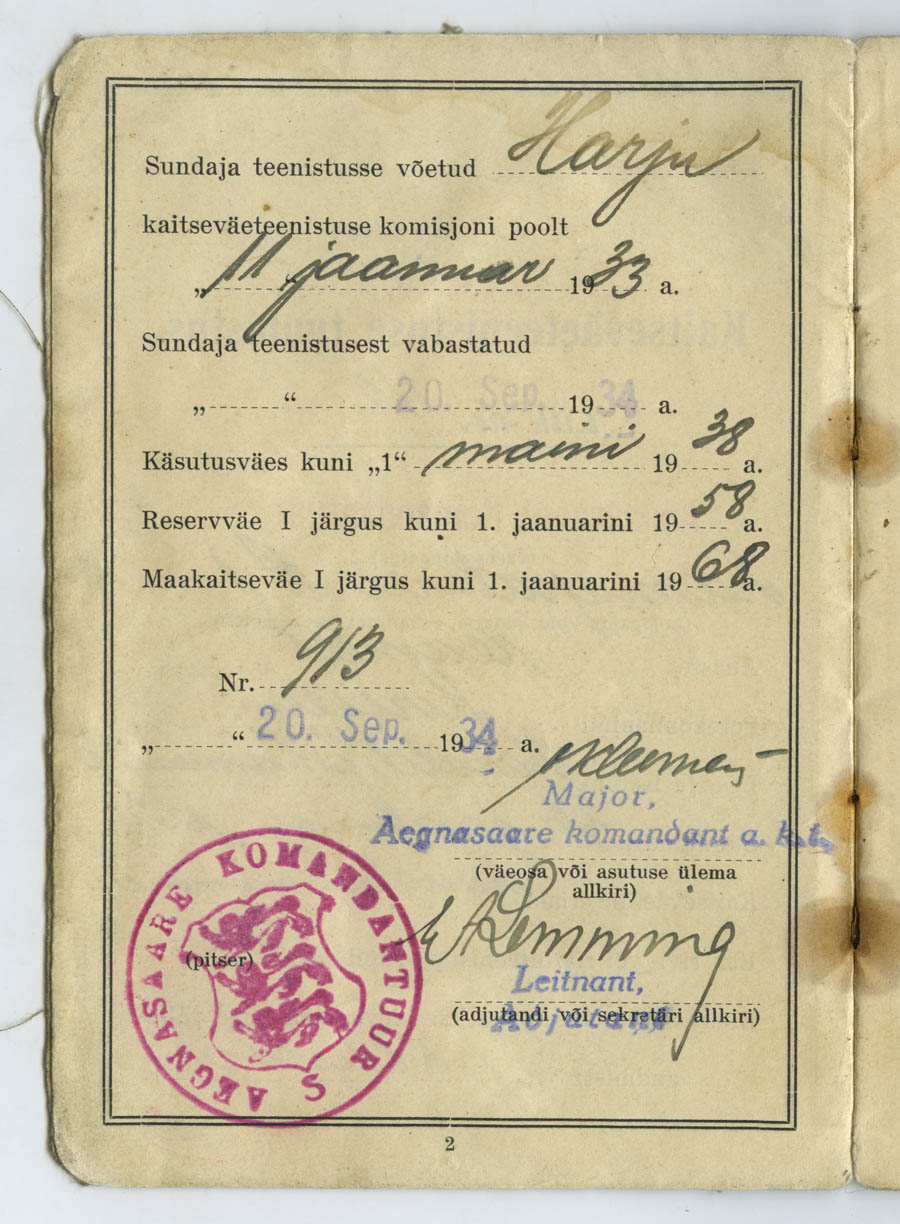 Sundaja teenistusse võetud Harju
kaitseväeteenistuse komisjoni poolt
„11“ jaanuar 1933 a.
Sundaja teenistusest vabastatud
„ “ 20. Sep. 1934 a.
Käsutusväes kuni „1“ maini 1938 a.
Reservväe I järgus kuni 1. jaanuarini 1958 a.
Maakaitseväe I järgus kuni 1. jaanuarini 1968 a.
Nr. 913
„ “ 20. Sep. 1934 a.
Major,
Aegnasaare komandant a. k. t.
(väeosa või asutuse ülema
allkiri)
Lemming
Leitnant,
Adjutant
(adjutandi või sekretäri allkiri)
(pitser)
AEGNASAARE KOMANDANTUUR
2